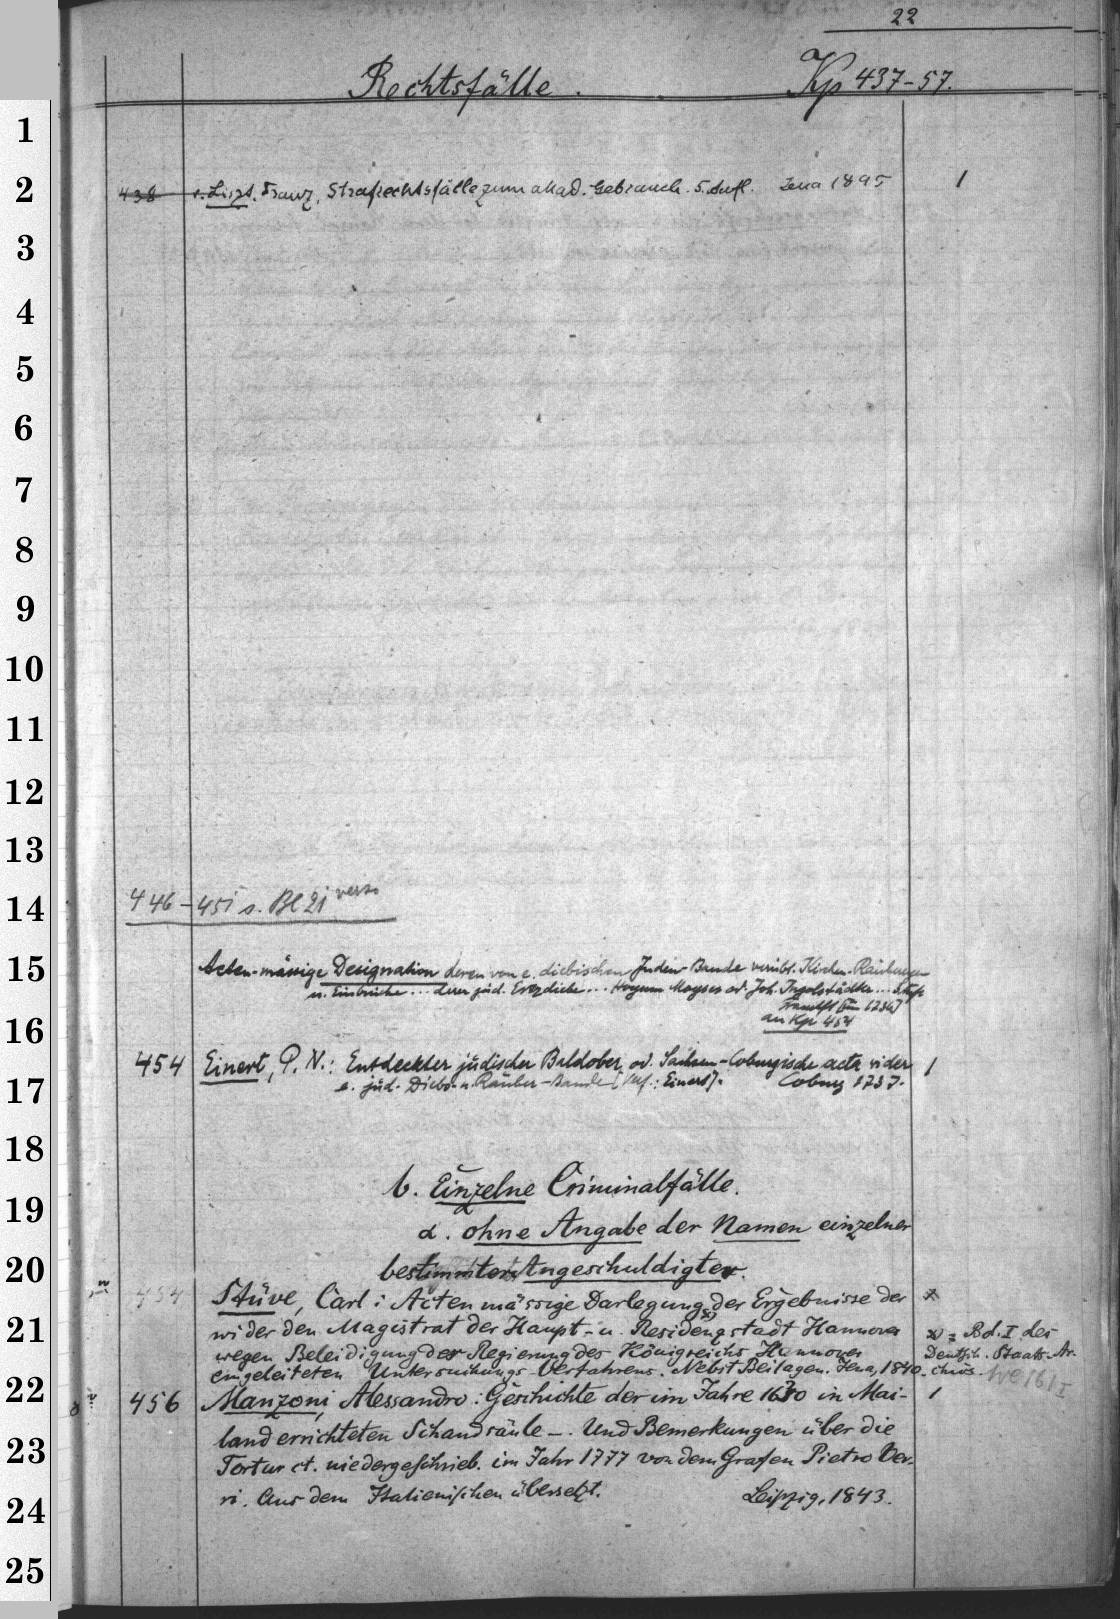 22
Rechtsfälle. Kp 437-57.
1
2
438 v. Liszt, Franz, Strafrechtsfälle zum akad. Gebrauch. 5. Aufl. Jena 1895 1
3
4
5
6
7
8
9
10
11
12
13
14
446-451 s. Bl 21 verso
15
Acten-mässige Designation deren von e. diebischen Juden-Bande verübt. Kirchen-Räubereyen
u. Einbrüche ... derer jüd. Erzdiebe ... Hoyum Moyses od. Joh. Ingolstädter ...
16
an Kp 454
454 Einert, P. N.: Entdeckter jüdischer Baldober od. Sachsen-Coburgische acta wider 1
17
e. jüd. Diebs- u. Räuber-Bande [Verf.: Einert]. Coburg 1737.
18
b. Einzelne Criminalfälle.
19
α. ohne Angabe der Namen einzelner
20
bestimmter Angeschuldigter.
454 Stüve, Carl: Acten mässige Darlegung x) der Ergebnisse der x
21
wider den Magistrat der Haupt- u. Residenzstadt Hannover x) = Bd. I des
wegen Beleidigung der Regierung des Königreichs Hannover Deutsch. Staats-Ar-
22
eingeleiteten Untersuchungs-Verfahrens. Nebst Beilagen. Jena, 1840. chivs.
456 Manzoni, Alessandro: Geschichte der im Jahre 1630 in Mai- 1
land errichteten Schandsäule -. Und Bemerkungen über die
23
Tortur ct. niedergeschrieb. im Jahr 1777 von dem Grafen Pietro Ver-
24
ri. Aus dem Italienischen übersetzt. Leipzig, 1843.
25